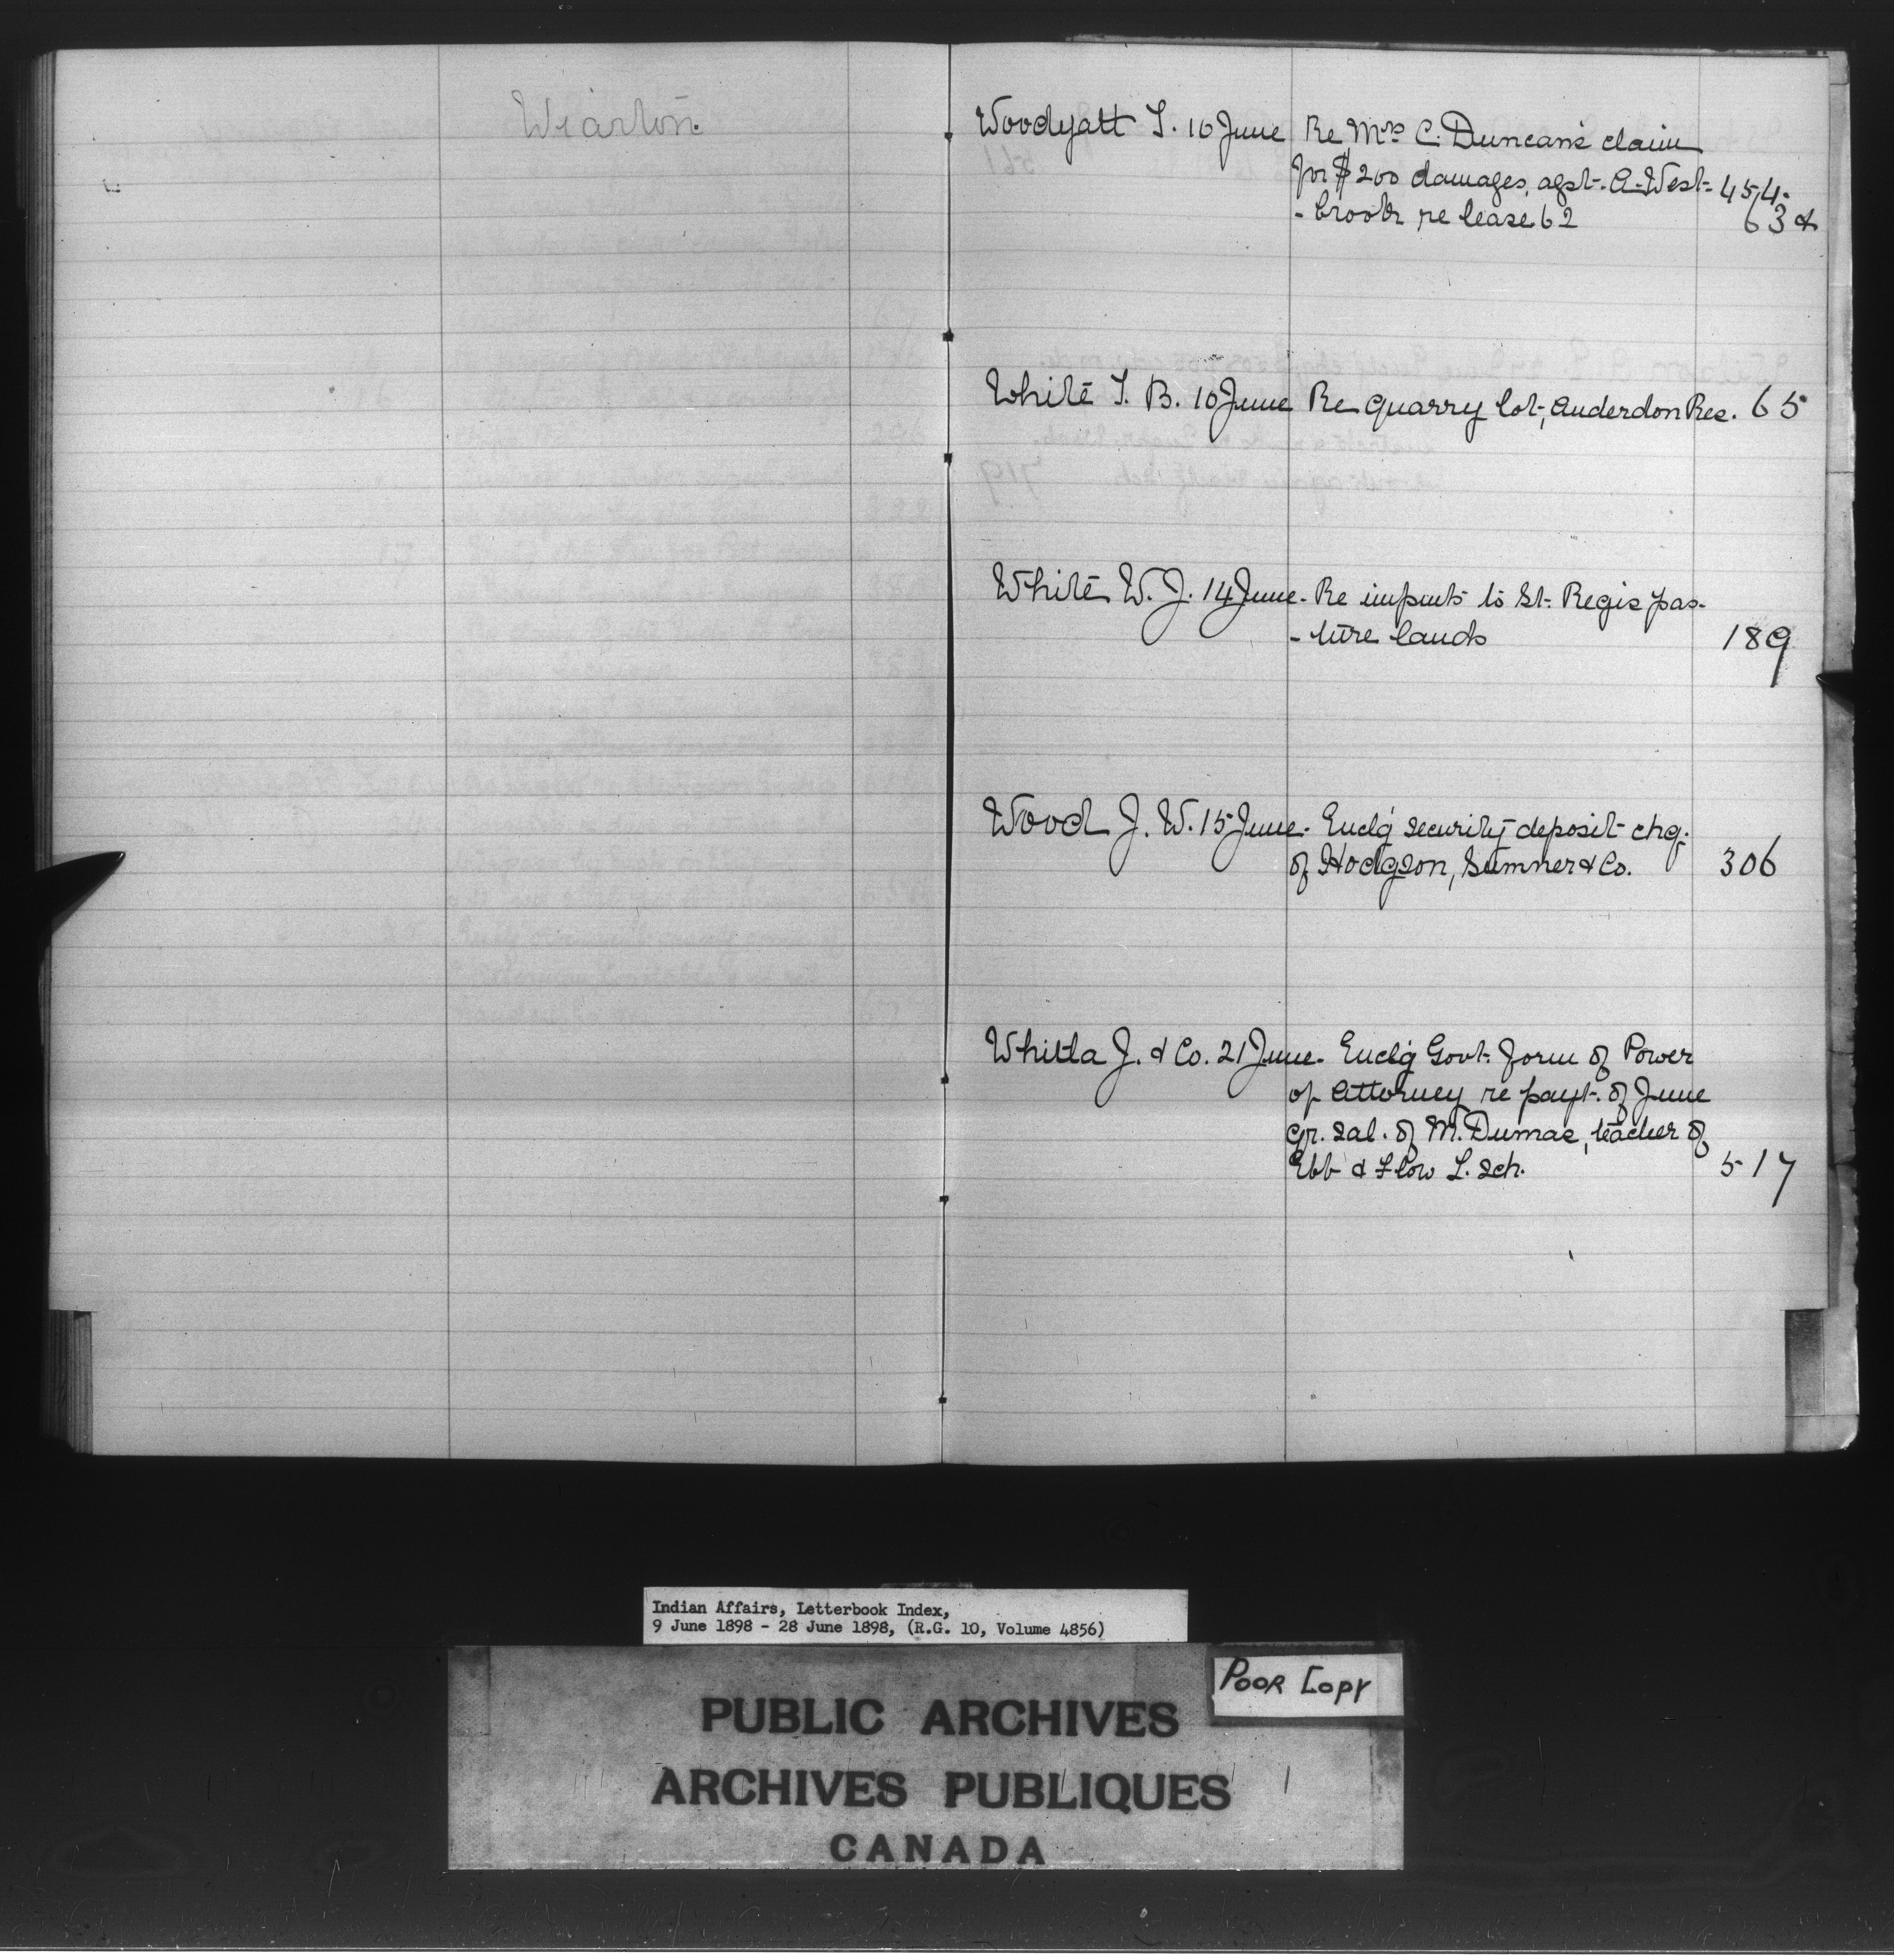 Wiarton.
Woodyatt T. 10 June Re Mrs. C. Duncan's claim
for $200 damages, agst. A. West- 454.
- brook re lease 62 63 &
White T. B. 10 June Re quarry lot, Anderdon Res. 65
White W. J. 14 June. Re impmts to St. Regis pas-
- ture lands 189
Wood J. W. 15 June. Enclg security deposit chq.
of Hodgson, Sumner & Co. 306
Whitla J. & Co. 21 June. Enclg Govt. form of Power
of Attorney re payt. of June
qr. sal. of M. Dumas, teacher of
Ebb & Flow L. sch. 517
Indian Affairs, Letterbook Index,
9 June 1898 - 28 June 1898, (R.G. 10, Volume 4856)
POOR COPY
PUBLIC ARCHIVES
ARCHIVES PUBLIQUES
CANADA